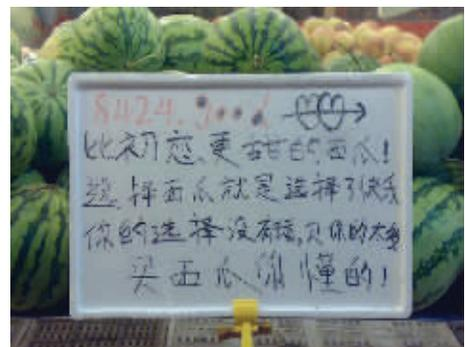 8424.good
比初恋更甜的西瓜!
选择西瓜就是选择了快乐
你的选择没有错,只你的太多
买西瓜你懂的!